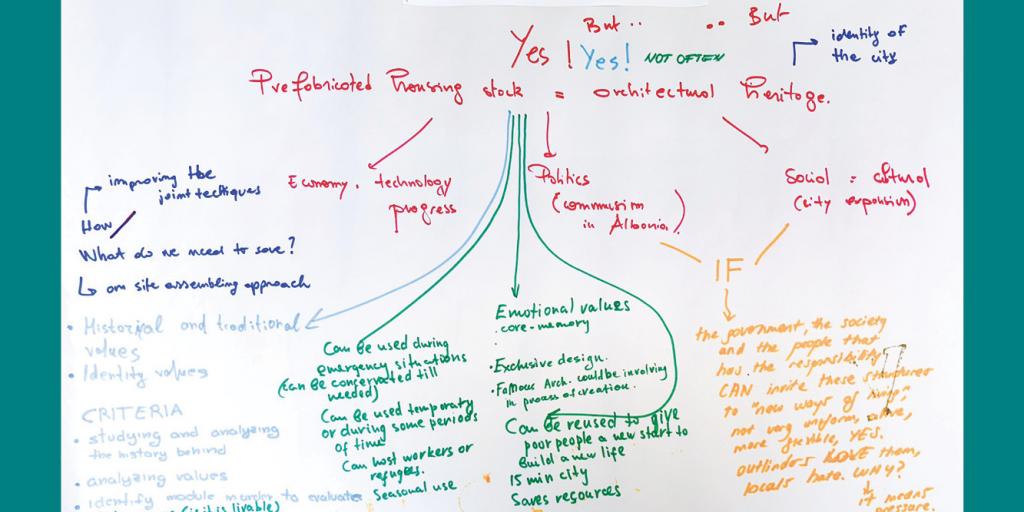 But ..
.. But
Yes ! Yes! NOT OFTEN
identity of
the city
Prefabricated Housing stock = architectural heritage.
improving the
joint techiques
How
What do we need to save?
on site assembling approach
Economy. technology
progress
Politics
(communism
in Albania)
Social = cultural
(city expantion)
IF
• Historical and traditional
values
• Identity values
CRITERIA
• studying and analyzing
the history behind
• analyzing values
• identify module in order to evaluate
(is it is livable)
Can be used during
emergency situations
(can be conservated till
needed)
Can be used temporaty
or during some periods
of time
Can host workers or
refugees.
Seasonal use
Emotional values
. core-memory
.
• Exclusive design.
• Famous Arch. could be involving
in process of creation.
Can be reused to give
poor people a new start to
Build a new life
15 min city
Saves resources
the government, the society
and the people that
has the responsibility
CAN invite these structures
to "new ways of living",
not very uniform, alive,
more flexible, YES.
outlinders LOVE them,
locals hate. WHY?
it means
pressure.